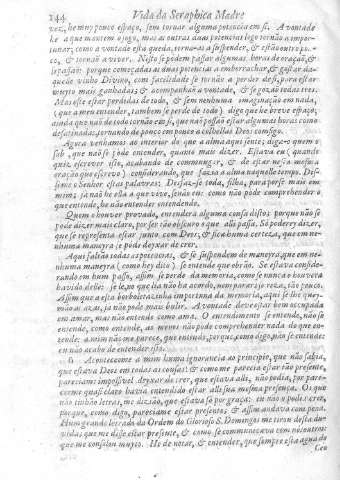 144 Vida da Seraphica Madre
vez, he muy pouco espaço, sem tornar alguma potencia em si. A vontade
he a que mantem o jogo, mas as outras duas potencias logo tornão a impor-
tunar; como a vontade està queda, torna-as a suspender, & estão outro pou-
co, & tornão a viver. Nisto se podem passar algumas horas de oração, &
se passão: porque começadas as duas potencias a emborrachar, & gostar da-
quelle vinho Divino, com facilidade se tornão a perder de si, para estar
muyto mais ganhadas; & acompanhão a vontade, & se gozão todas tres.
Mas este estar perdidas de todo, & sem nenhuma imaginação em nada,
(que a meu entender, tambem se perde de todo) digo que he breve espaço;
ainda que não de todo tornão em si, que não possão estar algumas horas como
desatinadas, tornando de pouco em pouco a colhellas Deos comsigo.
Agora venhamos ao interior do que a alma aqui sente; diga-o quem o
sab, que não se pode entender, quanto mais dizer. Estava eu (quando
quiz escrever isto, acabando de commungar, & de estar nesta mesma
oração que escrevo) considerando, que fazia a alma naquelle tempo. Dis-
seme o Senhor estas palavras: Desfaz-se toda, filha, para porse mais em
mim; já não he ella a que vive, senão eu: como não pode comprehender o
que entende, he não entender entendendo.
Quem o houver provado, entenderá alguma cousa disto; porque não se
pode dizer mais claro, por ser tão obscuro o que alli passa. Só poderey dizer,
que se representa estar junto com Deos, & fica huma certeza, que em ne-
nhuma maneyra se póde deyxar de crer.
Aqui faltão todas as potencias, & se suspendem de maneyra, que em ne-
nhuma maneyra (como hey dito) se entende que obrão. Se estava conside-
rando em hum passo, assim se perde da memoria, como se nunca o houvera
havido delle: se le, no que lia não ha acordo, nem parar: se reza, tão pouco.
Assim que a esta borboletazinha importuna da memoria, aqui se lhe quey-
mão as azas, já não póde mais bolir. A vontade deve estar bem occupada
em amar, mas não entende como ama. O entendimento se entende, não se
entende, como entende, ao menos não póde comprehender nada do que en-
tende: a mim não me parece, que entende, porque, como digo, não se entende:
eu não acabo de entender isto.
Aconteceome a mim huma ignorancia ao principio, que não sabia,
que estava Deos em todas as cousas: & como me parecia estar tão presente,
pareciame impossivel deyxar de crer, que estava alli, não podia, por pare-
cerme quasi claro havia entendido estar alli sua mesma presença. Os que
não tinhão letras, me dizião, que estava só por graça: eu não o podia crer,
porque, como digo, pareciame estar presente; & assim andava com pena.
Hum grande letrado da Ordem do Glorioso S. Domingos me tirou desta du-
vida; que me disse estar presente, & como se communicava com nosoutros:
que me consolou muyto. He de notar, & entender, que sempre esta agua do
Ceo